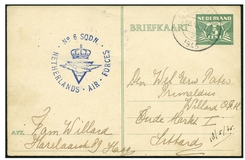 BRIEFKAART
NEDERLAND
5
No 6 SQDN.
NETHERLANDS - AIR - FORCES
Den Wel Eerw Pater
Willard O.F.M.
Oude Markt 1
Sittard
AFZ.
Fam Willard